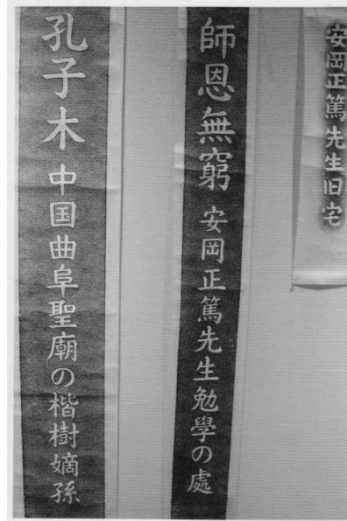 安岡正篤先生旧宅
師恩無窮 安岡正篤先生勉學の處
孔子木 中国曲阜聖廟の楷樹嫡孫